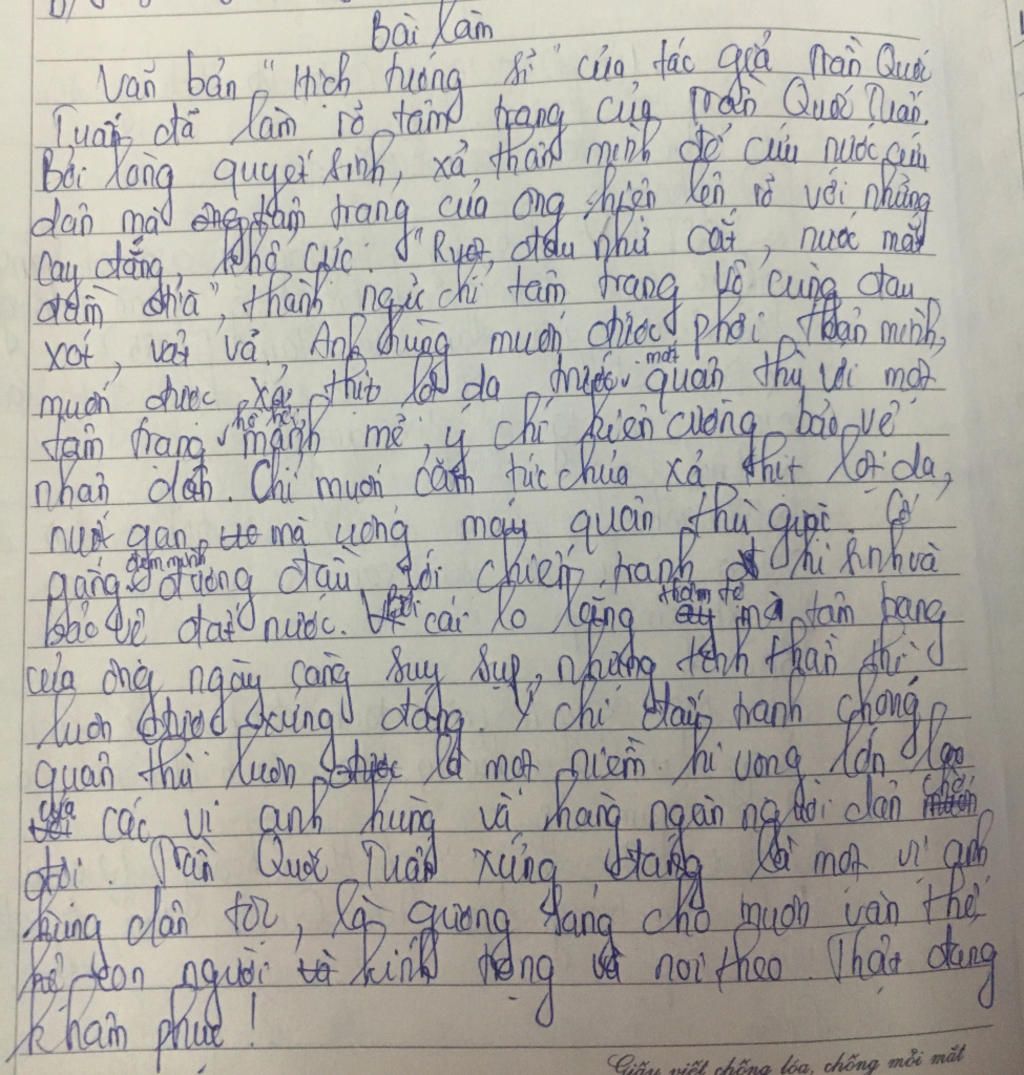 Bài làm
Văn bản "Hịch tướng sĩ" của tác giả Trần Quốc
Tuấn đã làm rõ tâm trạng của Trần Quốc Tuấn.
Bởi lòng quyết sinh, xả thân mình để cứu nước cứu
dân mà tâm trạng của ông hiện lên rõ với những
cay đắng, khổ cực. "Ruột đau như cắt, nước mắt
đầm đìa", thành ngữ chỉ tâm trạng vô cùng đau
xót, vất vả. Anh hùng muốn được phơi thân mình,
muốn được xả thịt lột da trước mặt quân thù với một
tâm trạng hả hê, mạnh mẽ, ý chí kiên cường bảo vệ
nhân dân. Chỉ muốn căm tức chưa xả thịt lột da,
nuốt gan mà uống máu quân thù giặc. Cố
gắng đem mình đương đầu với chiến tranh hi sinh và
bảo vệ đất nước. Bởi cái lo lắng thảm tê mà tâm trạng
của ông ngày càng suy sụp, nhưng tinh thần thì
luôn được xứng đáng. Ý chí đấu tranh chống
quân thù luôn là một niềm hi vọng lớn lao
của các vị anh hùng và hàng ngàn người dân chờ
đợi. Trần Quốc Tuấn xứng đáng là một vị anh
hùng dân tộc, là gương sáng cho muôn vàn thế
hệ con người kính trọng và noi theo. Thật đáng
khâm phục!
Giấy viết chống lóa, chống mỏi mắt